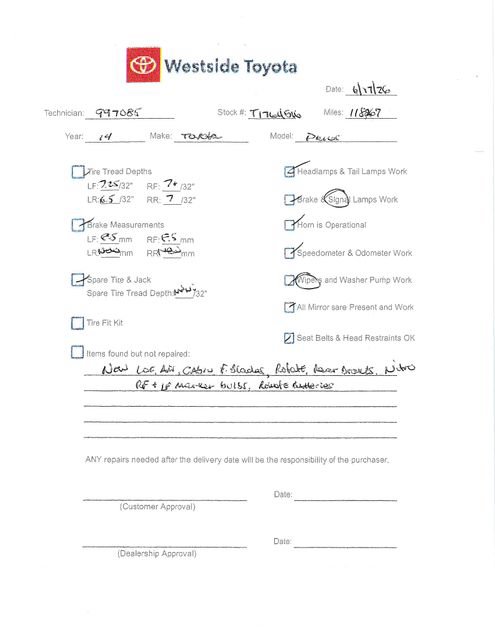 Westside Toyota
Date: 6/17/26
Technician: 997085 Stock #: Miles: 118367
Year: 14 Make: Toyota Model:
Tire Tread Depths
LF: 7.25/32" RF: 7+/32"
LR: 6.5/32" RR: 7/32"
Brake Measurements
LF: 8.5mm RF: 8.5mm
LR: New mm RR: New mm
Spare Tire & Jack
Spare Tire Tread Depth: New/32"
Tire Fit Kit
Items found but not repaired:
Headlamps & Tail Lamps Work
Brake & Signal Lamps Work
Horn is Operational
Speedometer & Odometer Work
Wipers and Washer Pump Work
All Mirror sare Present and Work
Seat Belts & Head Restraints OK
New LOF, Air, Cabin F. Blades, Rotate, Rear Brakes, Nitro
RF + LF Marker bulbs, Remote Batteries
ANY repairs needed after the delivery date will be the responsibility of the purchaser.
Date:
(Customer Approval)
Date:
(Dealership Approval)